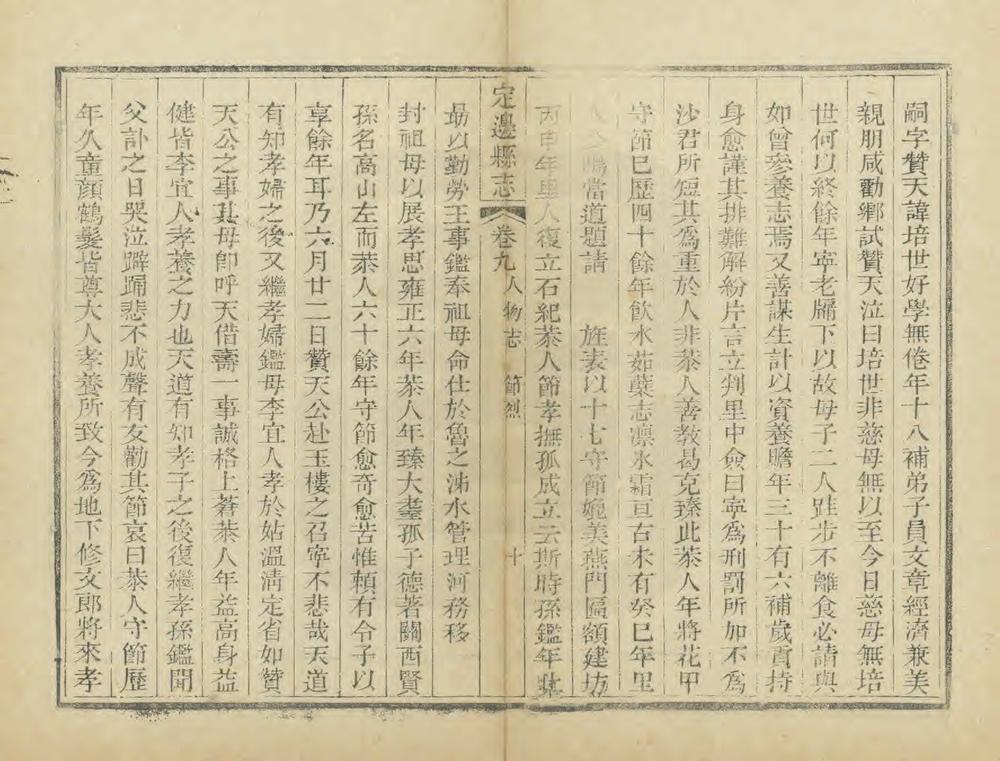 嗣字贊天諱培世好學無倦年十八補弟子員文章經濟兼美
親朋咸勸鄉試贊天泣曰培世非慈母無以至今日慈母無培
世何以終餘年寧老牖下以故母子二人跬步不離食必請與
如曾參養志焉又善謀生計以資養贍年三十有六補歲貢持
身愈謹其排難解紛片言立判里中僉曰寧為刑罰所加不為
沙君所短其為重於人非恭人善教曷克臻此恭人年將花甲
守節已歷四十餘年飲水茹蘗志凛氷霜亘古未有癸巳年里
鳴當道題請 旌表以十七守節媲美燕門匾額建坊
丙申年里人復立石紀恭人節孝撫孤成立云斯時孫鑑年
定邊縣志 卷九 人物志 節烈 十
塲以勤勞王事鑑奉祖母命仕於魯之涑水管理河務移
封祖母以展孝思雍正六年恭人年臻大耋孤子德著關西賢
孫名高山左而恭人六十餘年守節愈奇愈苦惟頼有令子以
享餘年耳乃六月廿二日贊天公赴玉樓之召寧不悲哉天道
有知孝婦之後又繼孝婦鑑母李宜人孝於姑溫凊定省如贊
天公之事其母卽呼天借壽一事誠格上蒼恭人年益高身益
健皆李宜人孝養之力也天道有知孝子之後復繼孝孫鑑聞
父訃之日哭泣躃踊悲不成聲有友勸其節哀曰恭人守節歷
年久童顔鶴髮皆尊大人孝養所致今為地下修文郎將來孝